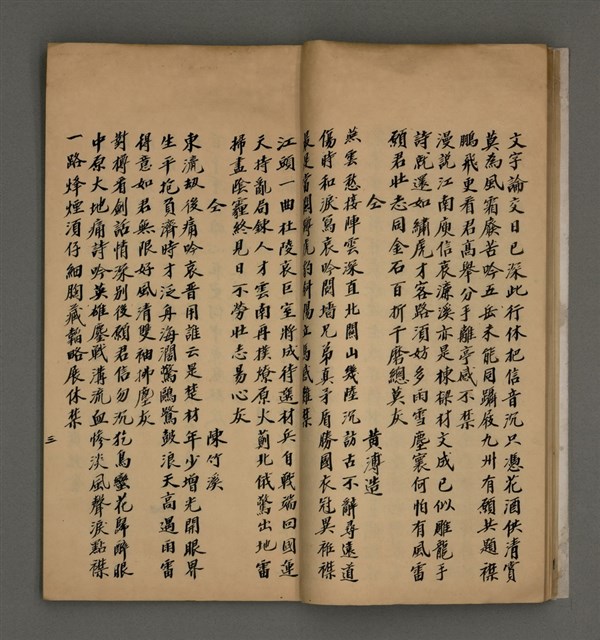 文字論交日已深此行休把信音沉只憑花酒供清賞
莫為風霜廢苦吟五岳未能同躡屐九州有願共題襟
鵬飛史看君高舉分手離亭感不禁
漫說江南庾信哀濂溪亦是棟樑材文成已似雕龍手
詩就還如繡虎才客路須妨多雨雪塵寰何怕有風雷
願君壯志同金石百折千磨總莫灰
仝 黃溥造
燕雲愁接陣雲深直北關山幾陸沉訪古不辭尋遠道
傷時和淚寫哀吟鬩墻兄弟真矛盾勝國衣冠異裕襟
江頭一曲杜陵哀巨室將成待選材兵自戰端回國運
天持亂局鍊人才雲南再撲燎原火薊北俄驚出地雷
掃盡陰霾終見日不勞壯志易心灰
仝 陳竹溪
東流劫後痛吟哀晉用誰云是楚材年少增光開眼界
生平抱負濟時才泛舟海濶驚鷗鷺鼓浪天高遇雨雷
得意如君無限好風清雙袖拂塵灰
對樽看劍話情深別後願君信勿沉花鳥鑾花歸醉眼
中原大地痛詩吟英雄塵戰溝流血慘淡風聲淚點襟
一路烽煙須仔細胸藏韜略展休禁
三